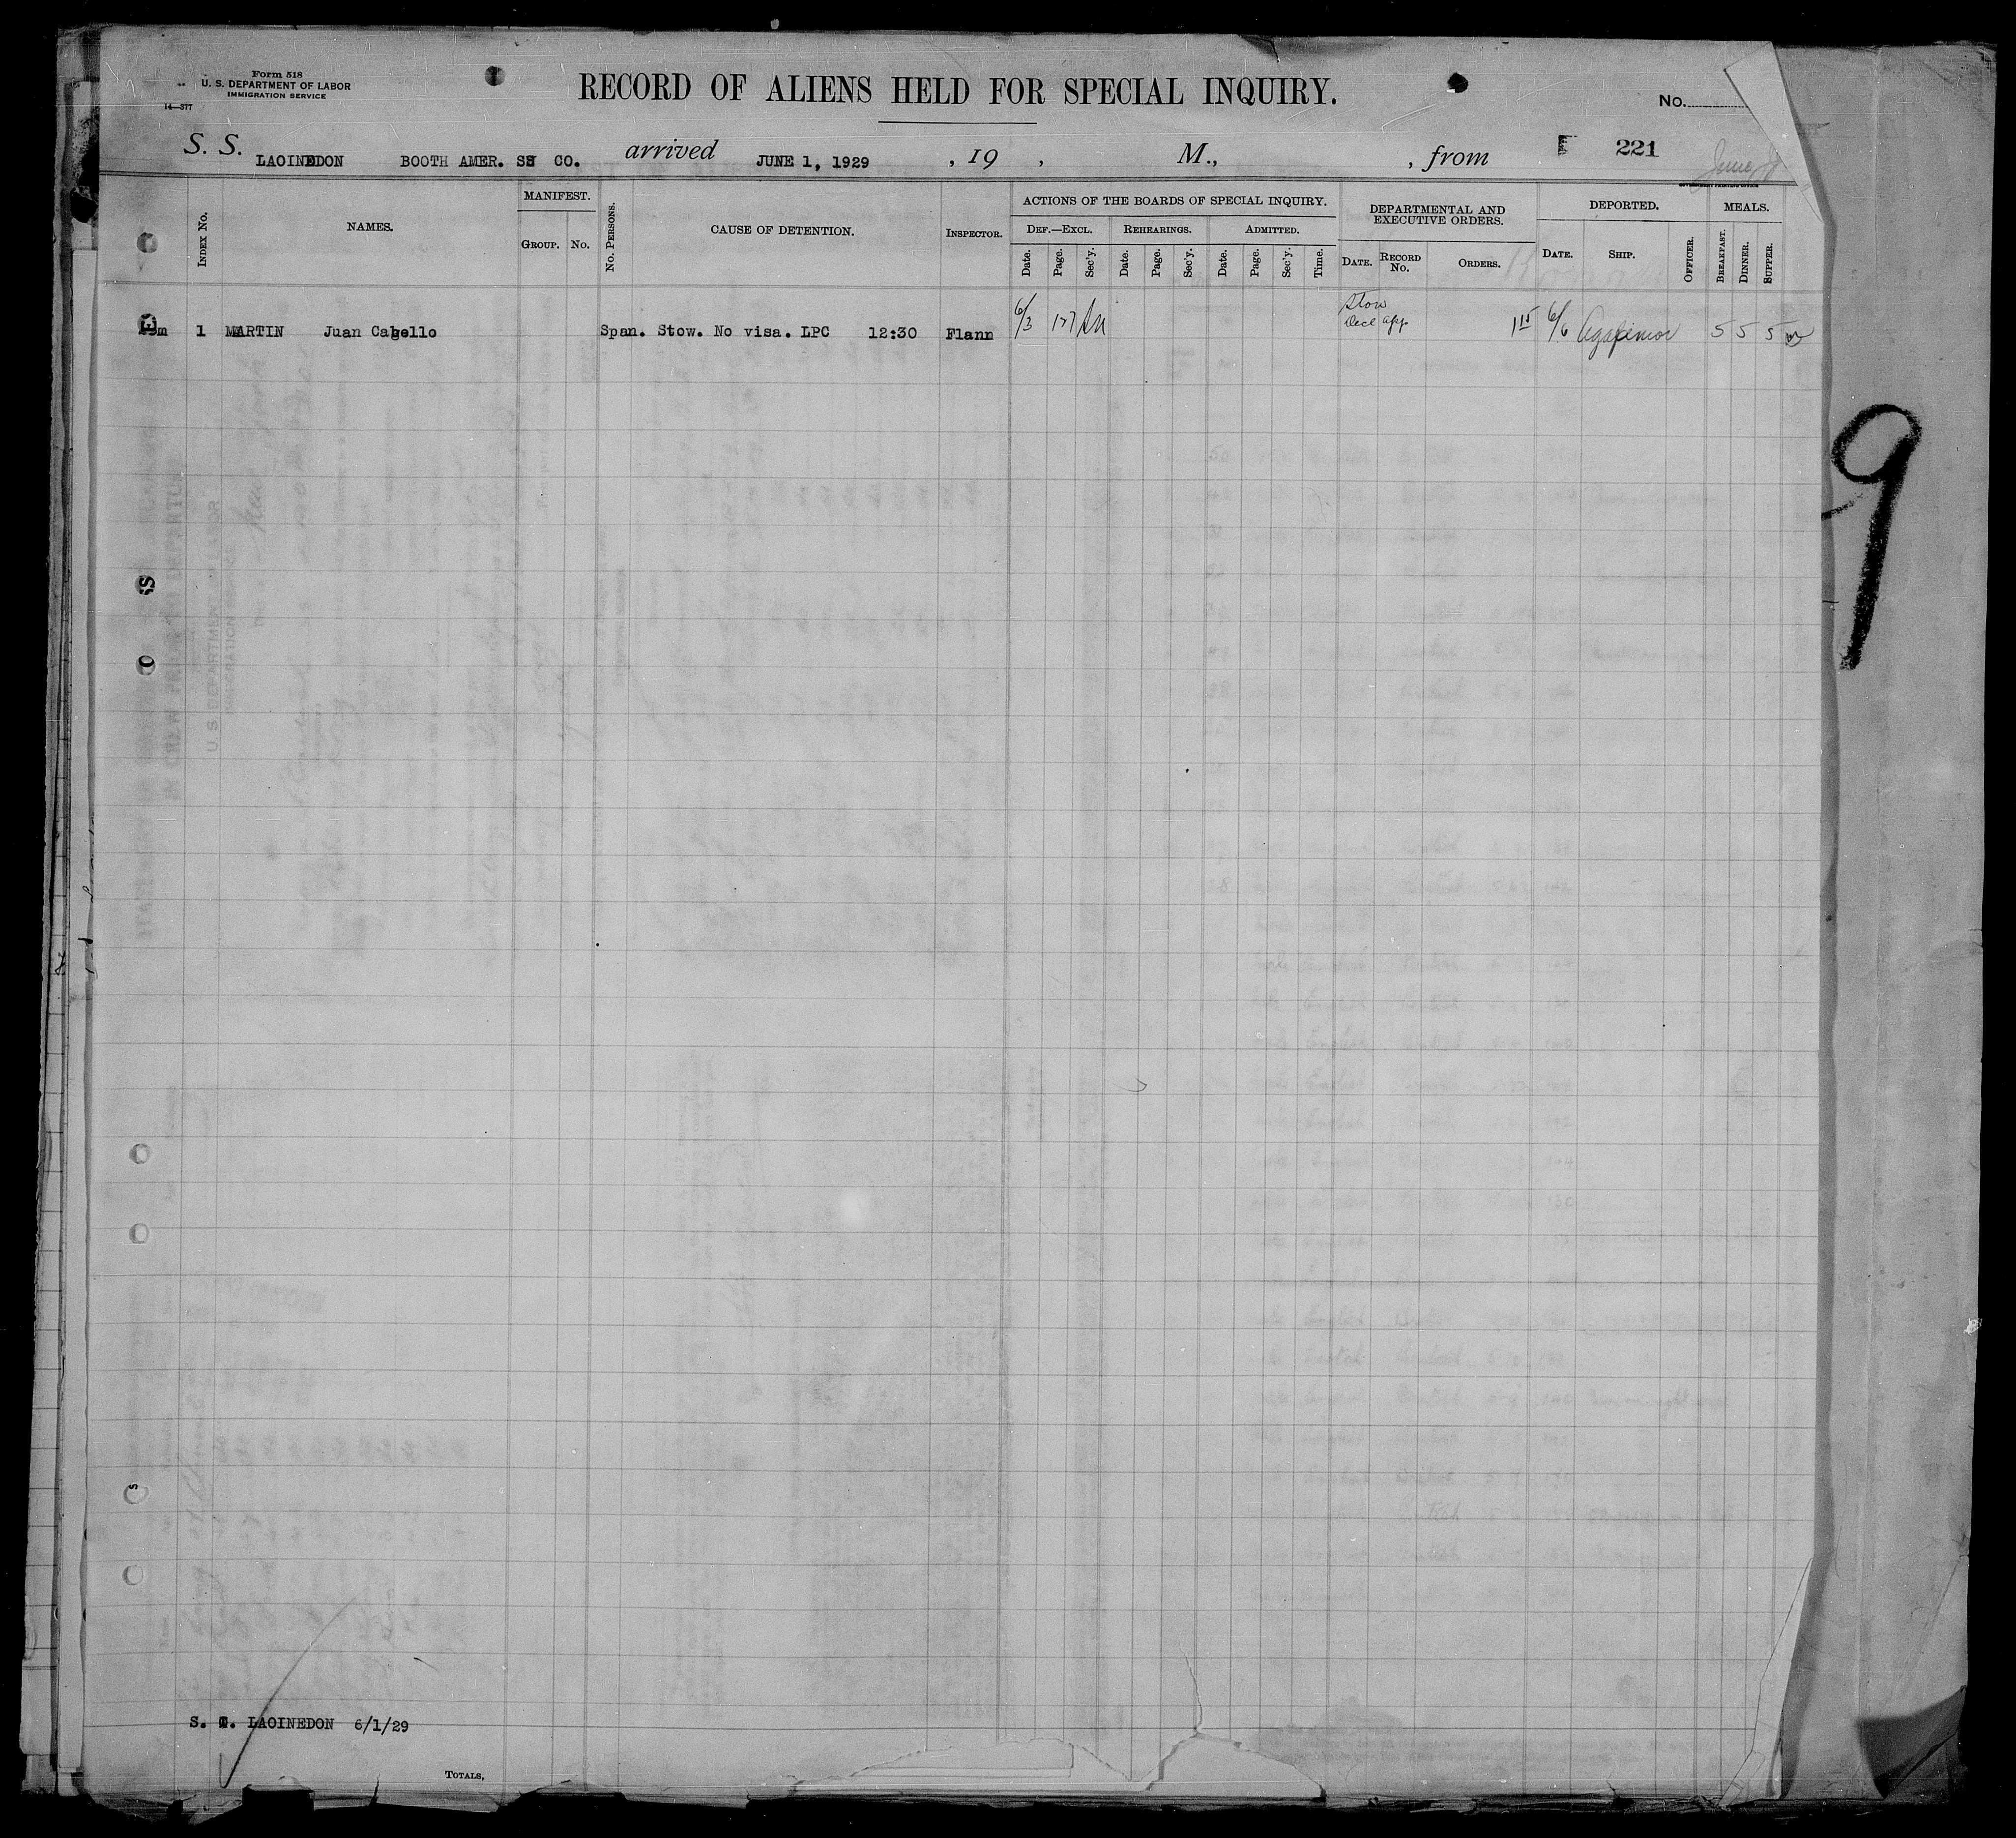 Form 518
U. S. DEPARTMENT OF LABOR
IMMIGRATION SERVICE
14—377
RECORD OF ALIENS HELD FOR SPECIAL INQUIRY.
No.
S. S. LAOINEDON BOOTH AMER. SS CO. arrived JUNE 1, 1929 , 19 , M., , from 221
INDEX No. NAMES. MANIFEST. GROUP. No. No. PERSONS. CAUSE OF DETENTION. INSPECTOR. ACTIONS OF THE BOARDS OF SPECIAL INQUIRY. DEF.—EXCL. Date. Page. Sec'y. REHEARINGS. Date. Page. Sec'y. ADMITTED. Date. Page. Sec'y. Time. DEPARTMENTAL AND EXECUTIVE ORDERS. DATE. RECORD No. ORDERS. DEPORTED. DATE. SHIP. OFFICER. MEALS. BREAKFAST. DINNER. SUPPER.
Stow
m 1 MARTIN Juan Cabello Span. Stow. No visa. LPC 12:30 Flann 6/3 177 Decl app. 6/6 Agapenor 5 5 5
9
S
C
S
S. LAOINEDON 6/1/29
TOTALS,